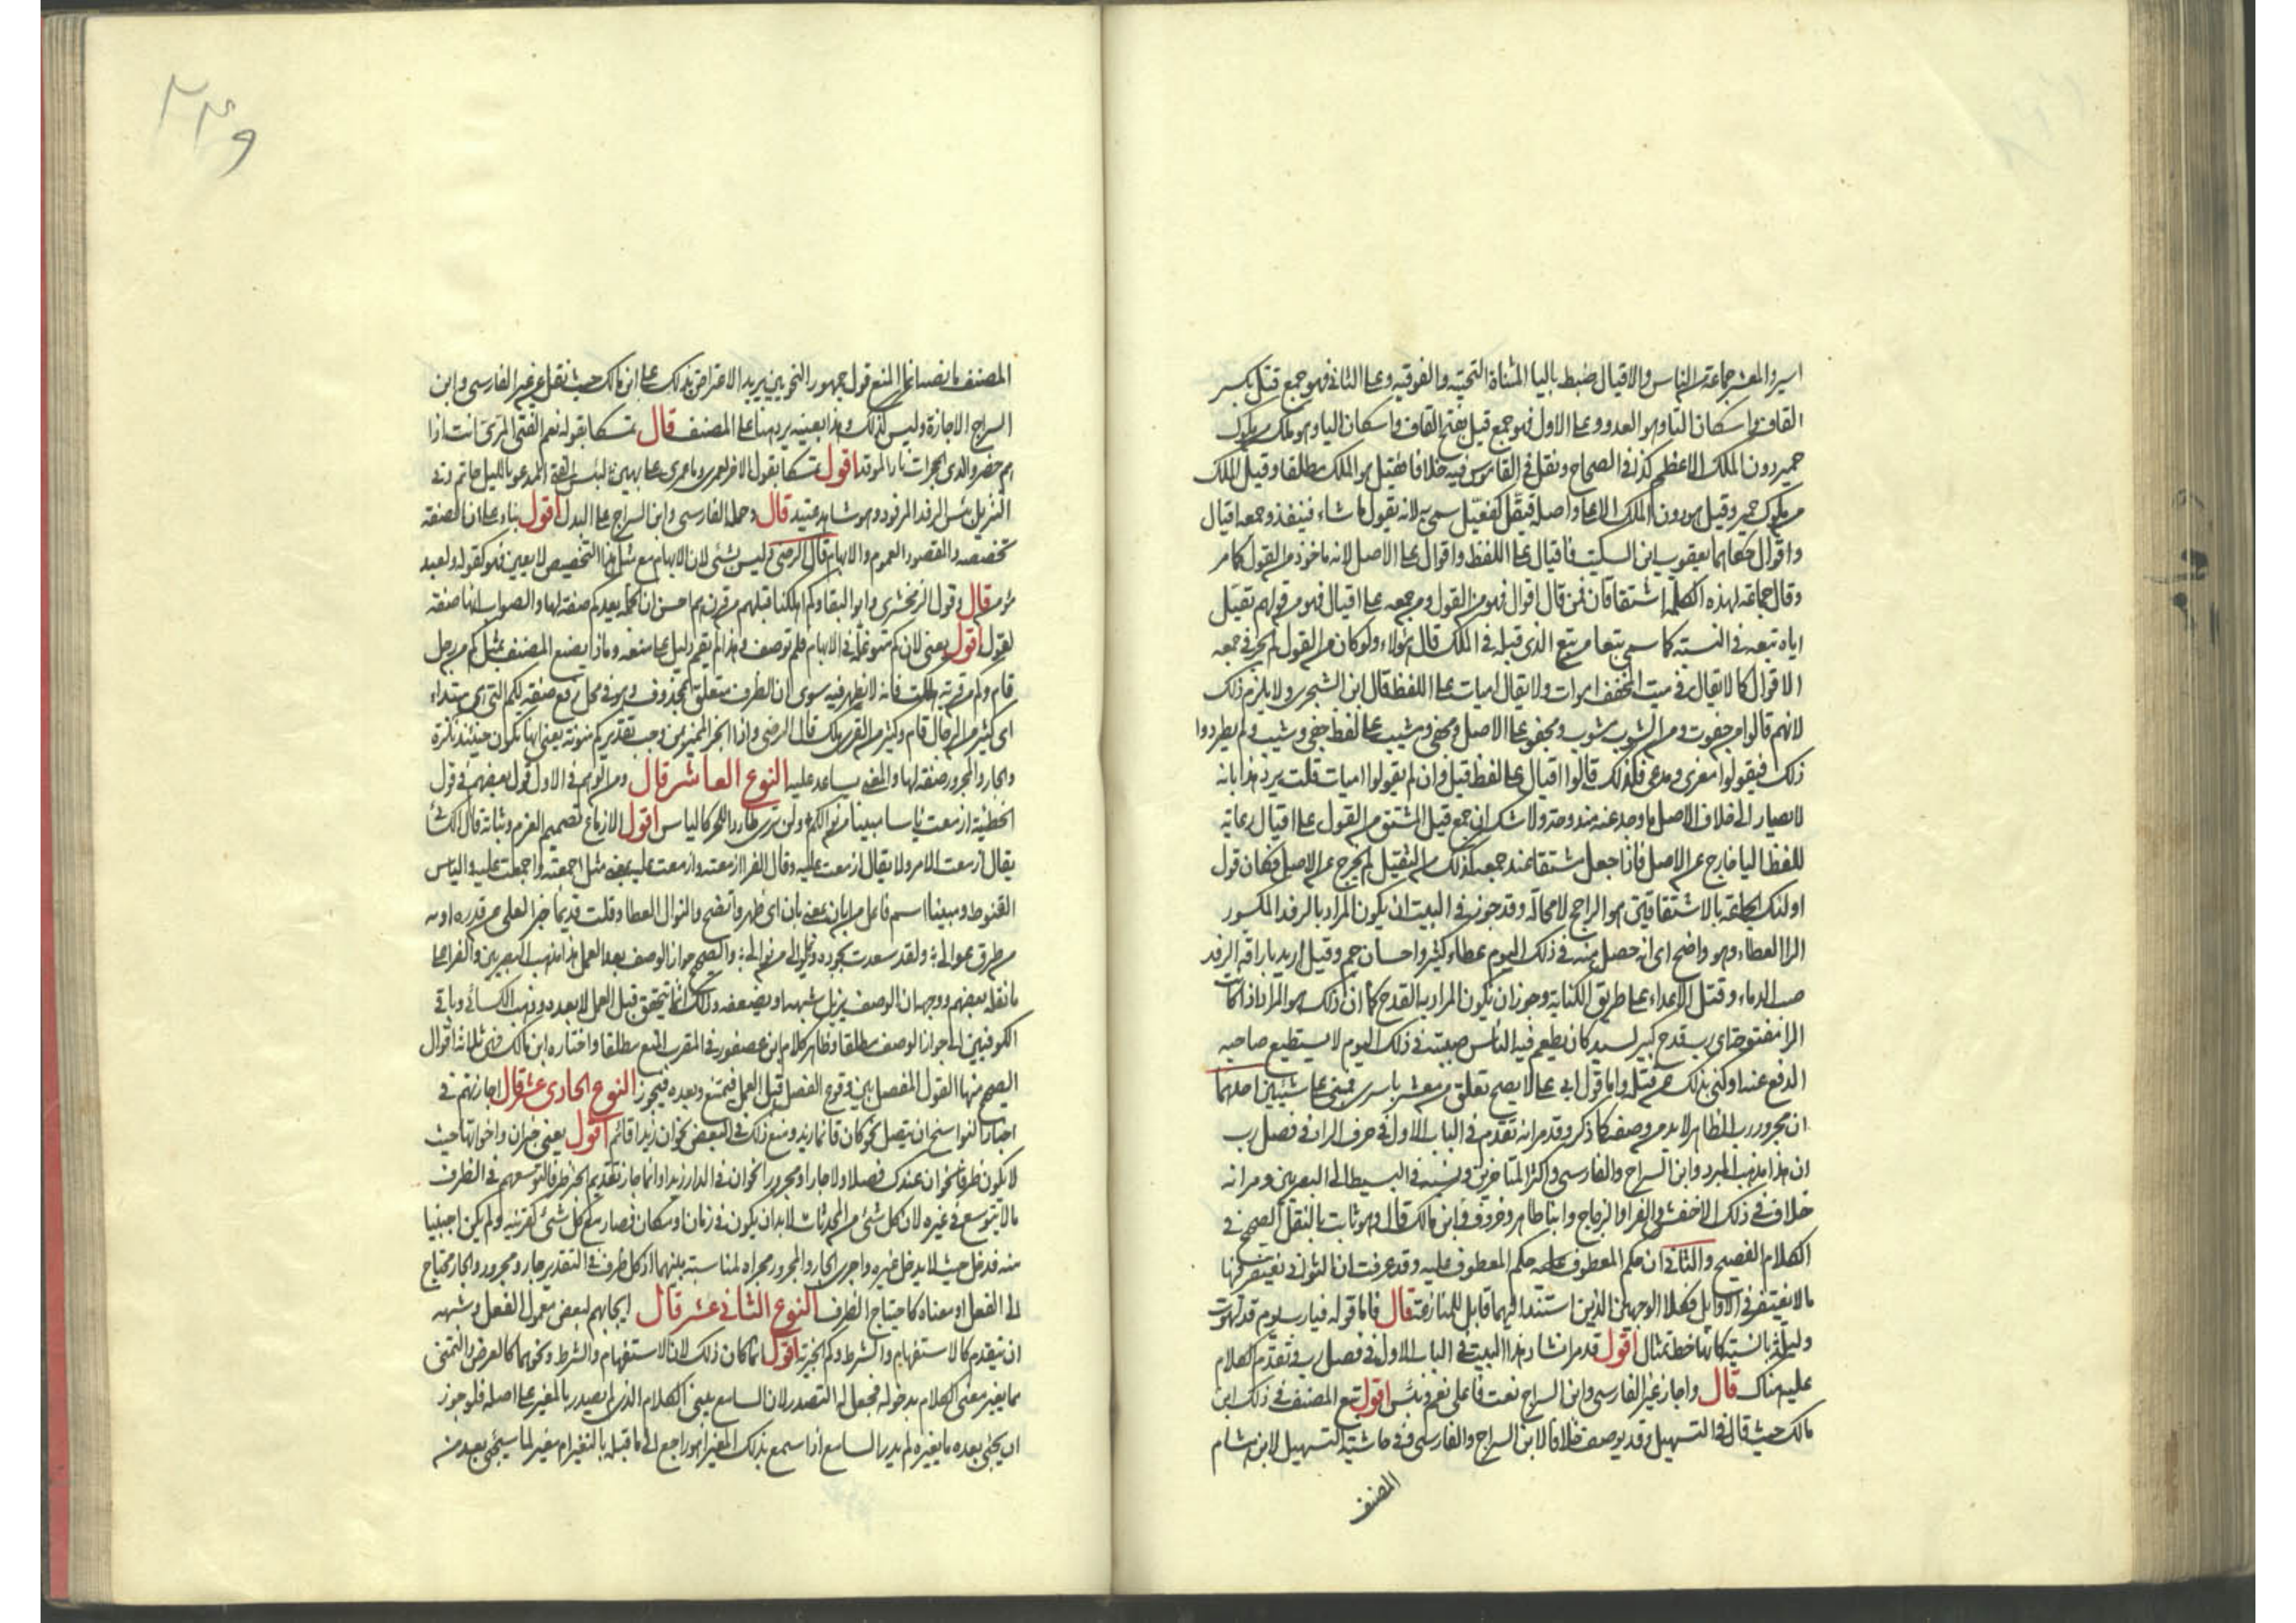 اسير والمعشر جماعة من الناس والاقيال ضبطه باليا المثناة التحتية والفوقيه وعلى الثانى فهو جمع قتل بكسر
القاف واسكان التا وهو العدو وعلى الاول فهو جمع قيل بفتح القاف واسكان اليا وهو ملك من ملوك
حمير دون الملك الاعظم كذا فى الصحاح ونقل فى القاموس فيه خلافا فقيل هو الملك مطلقا وقيل الملك
من ملوك حمير وقيل هو دون الملك الاعلى واصله قيّل كفيعل سمى به لانه يقول ما شاء فينفذ وجمعه اقيال
واقوال حكاهما يعقوب ابن السكيت فاقيال على اللفظ واقوال على الاصل لانه ماخوذ من القول كما مر
وقال جماعة لهذه الكلمة اشتقاقان فمن قال اقوال فهو من القول ومن جمعه على اقيال فهو من قولهم تقيل
اباه تبعه فى النسبة كما سمى تبعا من تبع الذى قبله فى الملك قال هولاء ولو كان من القول لم يجز فى جمعه
الا اقوال كما لا يقال فى ميت المخفف الا اموات ولا يقال اميات على اللفظ قال ابن الشجرى ولا يلزم ذلك
لانهم قالوا من جفوت ومن الشوب مشوب ومجفو على الاصل ومجفى ومشيب على لفظ جفى وشيب ولم يطردوا
ذلك فيقولوا مغزى ومدعى فكذلك قالوا اقيال على لفظ قيل وان لم يقولوا اميات قلت يرد هذا بانه
لا يصار الى خلاف الاصل ما وجد عنه مندوحة ولا شك ان جمع قيل المشتق من القول على اقيال رعاية
للفظ اليا خارج عن الاصل فاذا جعل مشتقا عند جمعه كذلك من التقيل لم يخرج عن الاصل فكان قول
اولئك الجماعة بالاشتقاقين هو الراجح لا محالة وقد جوزوا فى البيت ان يكون المراد بالرفد المكسور
الرا العطاء وهو واضح اى انه حصل منه فى ذلك اليوم عطاء كثير واحسان جم وقيل اريد باراقة الرفد
صب الدماء وقتل الاعداء على طريق الكناية وجوز ان يكون المراد به القدح كما ان ذلك هو المراد اذا كانت
الرا مفتوحة اى رب قدح كبير لسيد كان يطعم فيه الناس صببته فى ذلك اليوم لا يستطيع صاحبه
الدفع عنه او كنى بذلك عن قتله واما قول ابى على لا يصح تعلق من معشر باسرى فمبنى على شيئين احدهما
ان مجرور رب الظاهر لا بد من وصفه كما ذكر وقد مر انه تقدم فى الباب الاول فى حرف الراء فى فصل رب
ان هذا مذهب المبرد وابن السراج والفارسى واكثر المتاخرين ونسبه فى البسيط الى البصريين ومر انه
خلاف فى ذلك الاخفش والفرا والزجاج وابنا طاهر وخروف وابن مالك قال وهو ثابت بالنقل الصحيح فى
الكلام الفصيح والثانى ان حكم المعطوف حكم المعطوف عليه وقد عرفت ان الثوانى يغتفر فيها
ما لا يغتفر فى الاوايل فكلا الوجهين الذين استند اليهما قابل للمنازعة قال فاما قوله فيا رب يوم قد لهوت
وليلة بانسة كانها خط تمثال اقول قد مر انشاد هذا البيت فى الباب الاول فى فصل رب وتقدم الكلام
عليه هناك قال واجاز غير الفارسى وابن السراج نعت فاعلى نعم وبئس اقول تبع المصنف فى ذلك ابن
مالك حيث قال فى التسهيل وقد يوصف خلافا لابن السراج والفارسى وفى حاشية التسهيل لابن هشام
المصنف
٢٣٩
المصنف ما نصه انما المنع قول جمهور النحويين يريد الاعتراض بذلك على ابن مالك حيث نقل عن غير الفارسى وابن
السراج الاجازة وليس كذلك وهذا بعينه يرد هنا على المصنف قال تمسكا بقوله نعم الفتى المرى انت اذا
هم حضروا لدى الحجرات نار الموقد اقول تمسكا بقول الاخر لعمرى وما عمرى على بهين لبئس الفتى المدعو بالليل حاتم وفى
التنزيل بئس الرفد المرفود وهو شاهد عتيد قال وحمله الفارسى وابن السراج على البدل اقول بناء على ان الصفة
تخصيصه والمقصود العموم والابهام قال الرضى وليس بشئ لان الابهام مع مثل هذا التخصيص لا يعين فهو كقوله ولعبد
مؤمن قال وقول الزمخشرى وابو البقا وكم اهلكنا قبلهم من قرن هم احسن ان الجملة بعد كم صفة لها والصواب انها صفة
لقول اقول يعنى لان كم متوغلة فى الابهام فلم توصف وهذا لم يقم دليل على منعه وماذا يصنع المصنف بمثل كم من رجل
قام وكم من قرية هلكت فانه لا يظهر فيه سوى ان الظرف متعلق بمحذوف وهو فى محل رفع صفة لكم التى هى مبتداء
اى كثير من الرجال قام وكثير من القرى هلك قال الرضى واذا انجر المميز بمن وجب تقدير كم منونة يعنى انها تكون حينئذ نكرة
والجار والمجرور صفة لها والمعنى يساعد عليه النوع العاشر قال ومن الوهم فى الاول قول بعضهم فى قول
الحطيئة ازمعت ياسا مبينا من نوالكم ولن ترى طاردا للحر كالياس اقول الازماع تصميم العزم وثباته قال الكسائى
يقال ازمعت الامر ولا يقال ازمعت عليه وقال الفرا ازمعته وازمعت عليه بمعنى مثل اجمعته واجمعت عليه والياس
القنوط ومبينا اسم فاعل من ابان بمعنى بان اى ظهر واتضح والنوال العطا وقلت قديما
ولقد سعدت والصحيح جواز الوصف بعد العمل هذا مذهب البصريين والفرا على
ما نقله بعضهم ووجهه ان الوصف يزيل شبهه او يضعفه وذلك انما يتحقق قبل العمل لا بعده وذهب الكسائى وباقى
الكوفيين الى جواز الوصف مطلقا وظاهر كلام ابن عصفور فى المقرب المنع مطلقا واختاره ابن مالك فهى ثلاثة اقوال
الصحيح منها القول المفصل بين وقوع الفصل قبل العمل فيمتنع وبعده فيجوز النوع الحادى عشر قال اجازتهم فى
اخبار النواسخ ان يتصل نحو كان قائما زيد ومنع ذلك فى البعض نحو ان زيدا قائم اقول يعنى خبر ان واخواتها حيث
لا يكون ظرفا نحو ان عندك فضلا ولا جارا ومجرورا نحو ان فى الدار زيدا وانما جاز تقديم الخبر ظرفا لتوسعهم فى الظرف
ما لا يتوسع فى غيره لان كل شئ من المحدثات لا بد ان يكون فى زمان او مكان فصار مع كل شئ كقرينه ولم يكن اجنبيا
منه فدخل حيث لا يدخل غيره واجرى الجار والمجرور مجراه لمناسبة بينهما اذ كل ظرف فى التقدير جار ومجرور والجار محتاج
الى الفعل او معناه كاحتياج الظرف النوع الثانى عشر قال ايجابهم لبعض معمول الفعل وشبهه
ان يتقدم كالاستفهام والشرط وكم الخبرية اقول انما كان ذلك لان الاستفهام والشرط ونحوهما كالعرض والتمنى
مما يغير معنى الكلام بدخوله فجعل له التصدر لان السامع يبنى الكلام الذى لم يصدر بالمغير على اصله فلو جوز
ان يجئ بعده ما يغيره لم يدر السامع اذا سمع بذلك المغير اهو راجع الى ما قبله بالتغيير ام مغير لما سيجئ بعد من